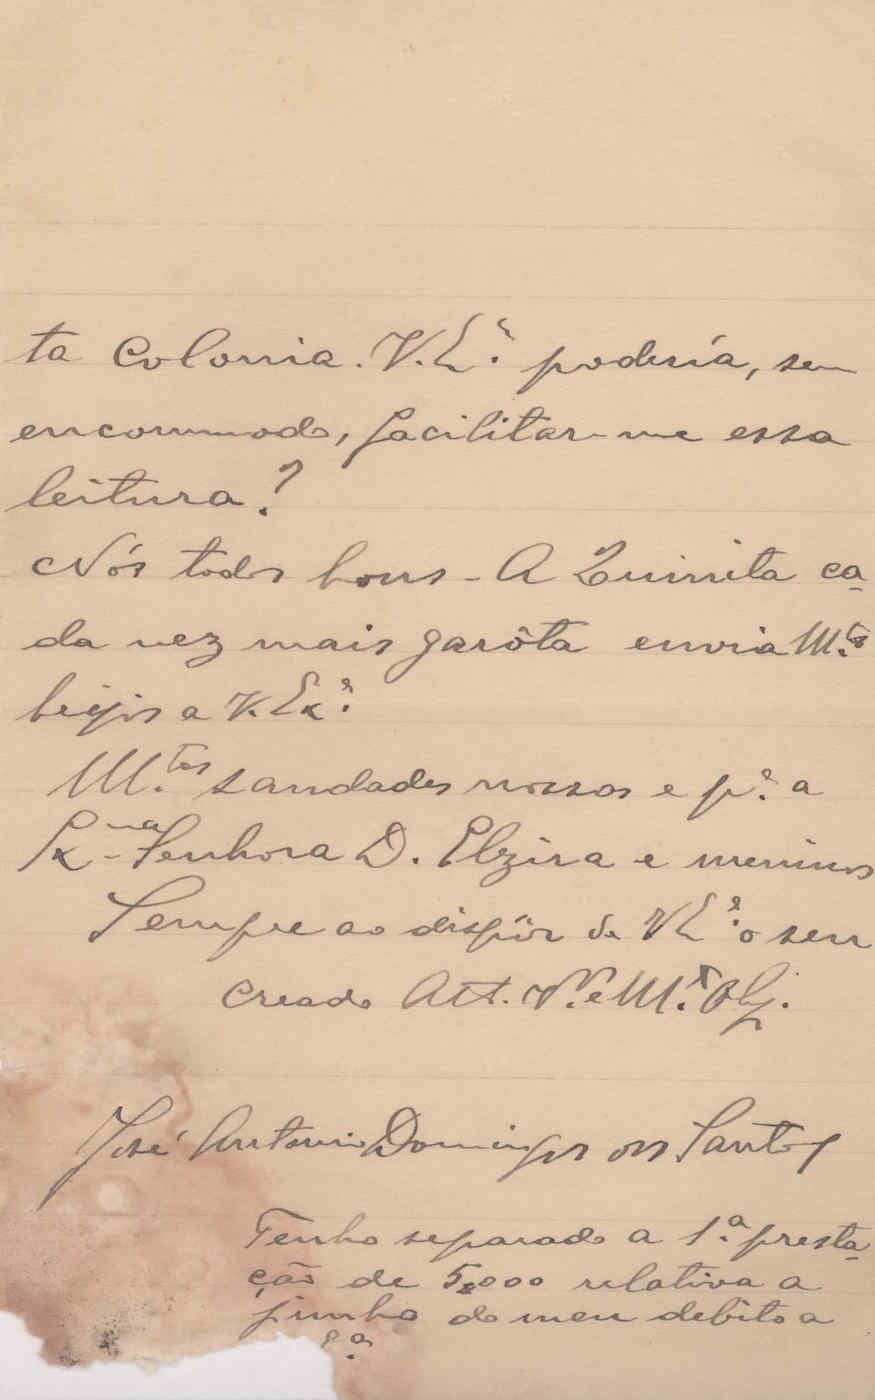 ta Colonia. V. Eª. poderia, sem
encommodo, facilitar-me essa
leitura?
Nós todos bons - A Quinita ca-
da vez mais garôta envia M.tos
beijos a V. Exª.
M.tas saudades nossas e pª. a
Exma Senhora D. Elzira e meninos
Sempre ao dispôr de V Eª. o seu
creado Att. Vº. e M.to Obg.
José Antonio Domingos dos Santos
Tenho separado a 1.ª presta-
ção de 5,000 relativa a
junho do meu debito a
Eª.